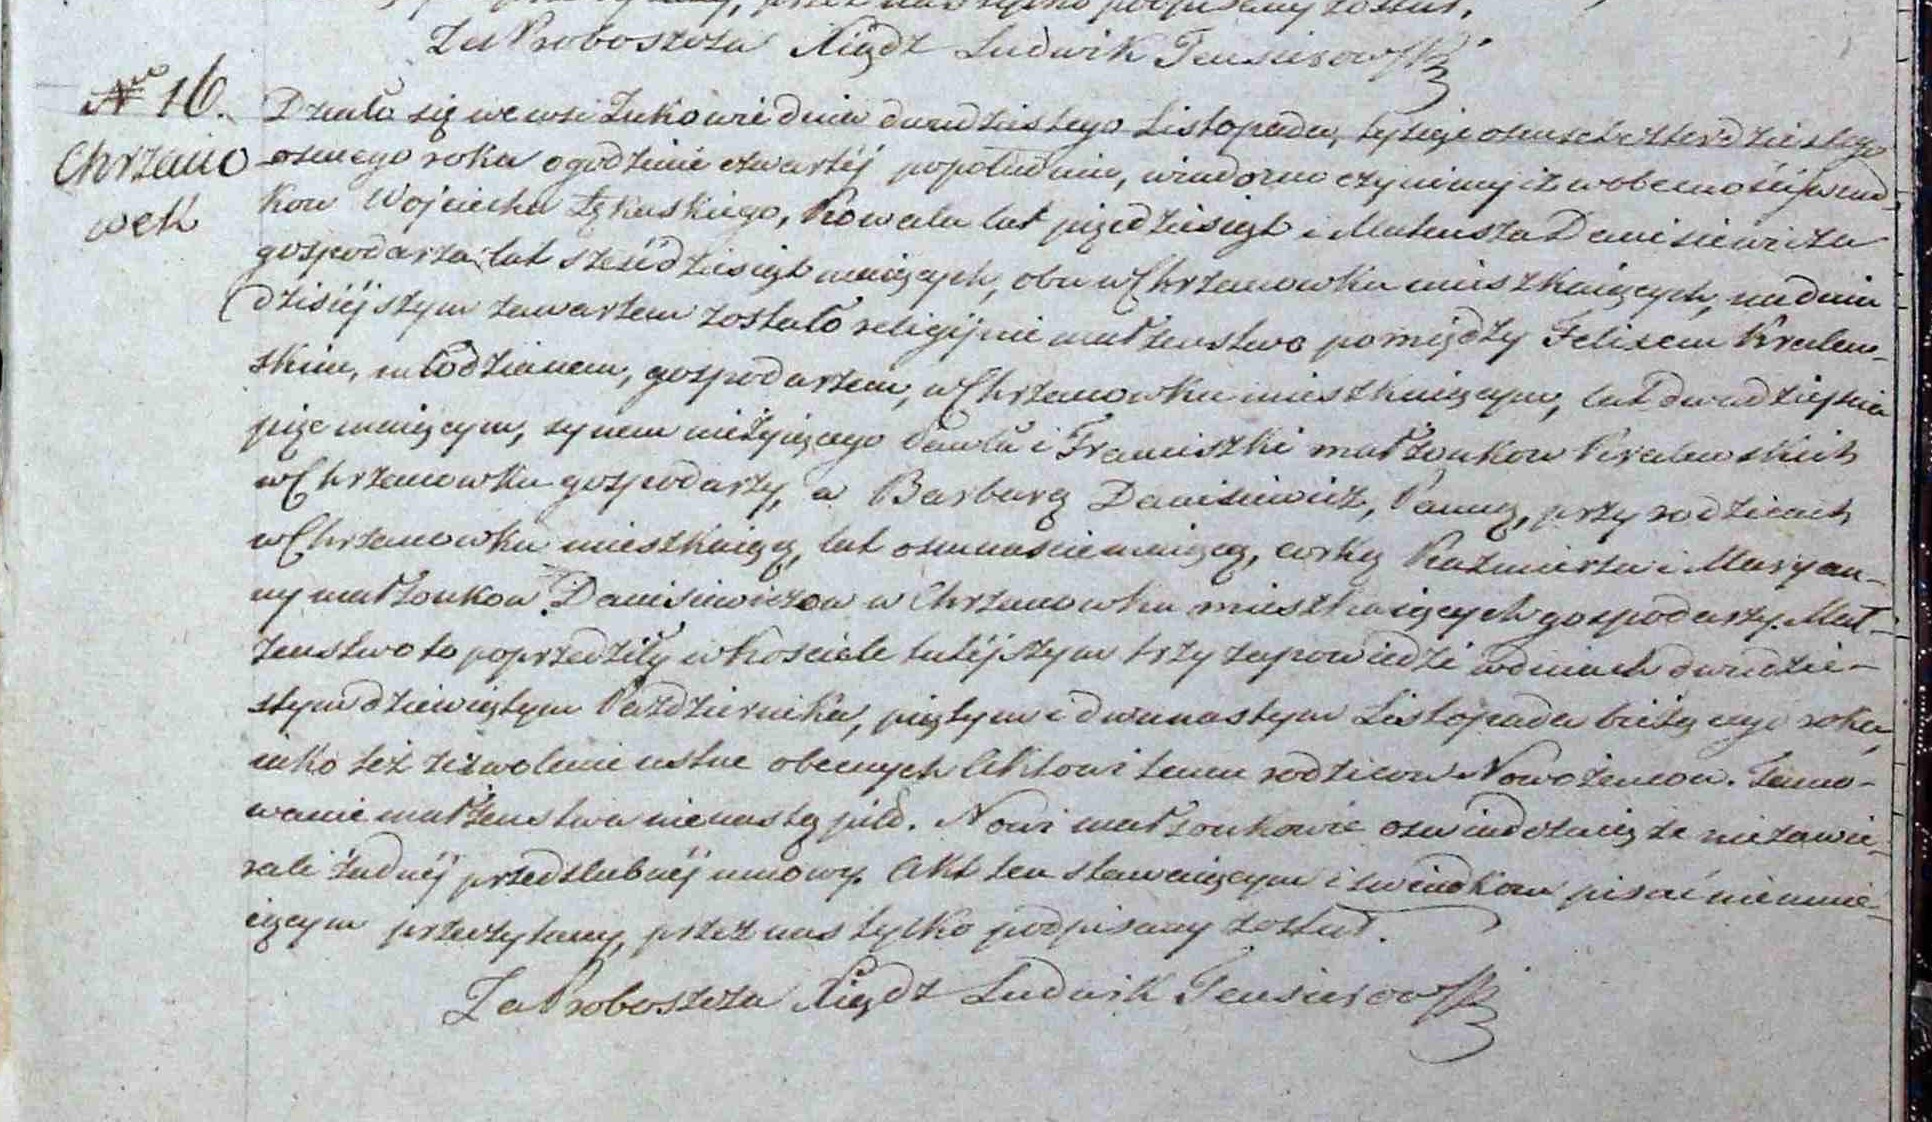 Za Proboszcza Xiądz Ludwik
Nro 16.
Chrzano
wek
Działo się we wsi Żukowie dnia dwudziestego Listopada, tysiąc osmset czterdziestego
osmego roku o godzinie czwartej popołudniu, wiadomo czynimy iż w obecności świad-
kow Wojciecha Łękaskiego, Kowala lat pięćdziesiąt i Mateusza Danisiewicza
gospodarza lat sześćdziesiąt maiących, obu w Chrzanowku mieszkaiących, na dniu
dzisiejszym zawartem zostało religijnie małżenstwo pomiędzy Felixem Kralew-
skim, młodzianem, gospodarzem, w Chrzanowku mieszkaiącym, lat dwadzieścia
pięc maiącym, synem nieżyiącego Pawła i Franciszki małżonkow Kralewskich
w Chrzanowku gospodarzy, a Barbarą Danisiewicz, Panną, przy rodzicach
w Chrzanowku mieszkaiącą, lat osmnascie maiącą, corką Kazmierza i Maryan-
ny małżonkow Danisiewiczow w Chrzanowku mieszkaiących gospodarzy. Mał-
żenstwo to poprzedziły w kościele tutejszym trzy zapowiedzi w dniach dwudzie-
stym dziewiątym Pazdziernika, piątym i dwunastym Listopada bieżącego roku,
iako też zezwolenie ustne obecnych Aktowi temu rodzicow Nowożencow. Tamo-
wanie małżenstwa nie nastąpiło. Nowi małżonkowie oswiadczaią że nie zawie-
rali żadnej przedslubnej umowy. Akt ten stawaiącym i swiadkom pisać nieumie-
iącym przeczytany, przez nas tylko podpisany został.
Za Proboszcza Xiądz Ludwik